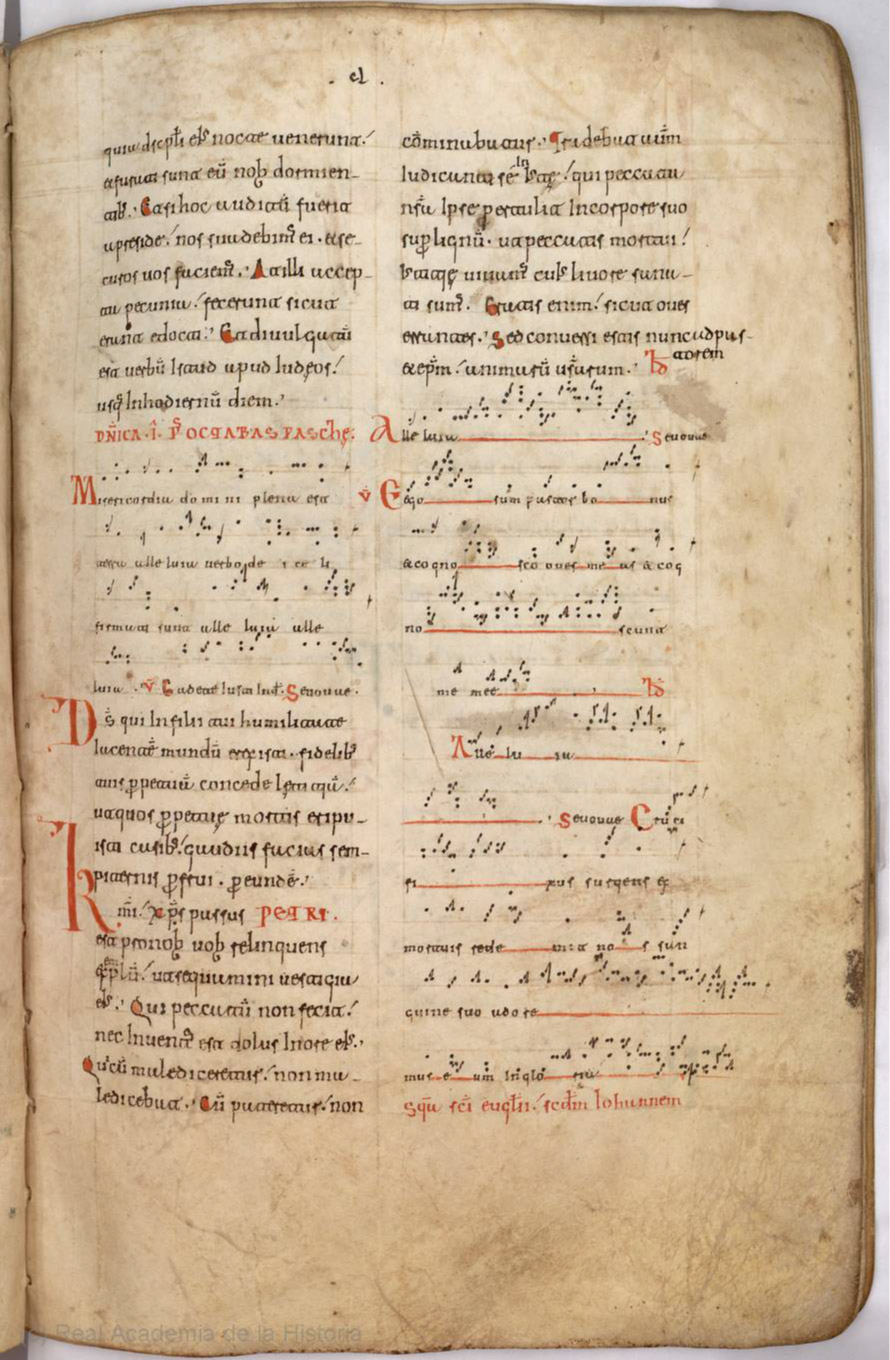 . cl .
quia discpłi eiꝰ nocte uenerunt
et furati sunt eū nob dormien-
tib. Et si hoc auditū fuerit
a preside nos suadebim̄ ei. et se-
curos uos faciem̄. At illi accep-
ta pecunia fecerunt sicut
erant edocti. Et diuulgatū
est uerbū Istud apud Iudęos
usq̨ In hodiernū diem.
DN̄ICA .I. P̄ OCTABAS PASCHE.
Misericordia domini plena est
terra alleluia uerbo dei celi
firmati sunt alleluia alle
luia. V̄ Gaudete Iusti In d. Seuouae.
Dš qui In filii tui humilitate
Iacentē mundū erexisti. fidelib
tuis ꝑpetuā concede lętitiā
ut quos ꝑpetuę mortis eripu-
isti casib. gaudiis facias sem-
piternis ꝑfrui. ꝑ eundē.
PETRI.
Kmi. xp̄s passus
est pro nob uob relinquens
exēplū. ut sequamini uestigia
eiꝰ. Qui peccatū non fecit
nec Inuentꝰ est dolus In ore eiꝰ.
Qui cū malediceretur. non ma-
ledicebat. Cū pateretur. non
cōminabatur. Tradebat autē
Iudicanti se Iniuste. qui peccata
nr̄a Ipse pertulit In corpore suo
supͬ lignū. ut peccatis mortui
Iustitię uiuamꝰ cuiꝰ liuore sana-
ti sumꝰ. Eratis enim sicut oues
errantes. Sed conuersi estis nunc ad pas-
torem
et ep̄m animarū ur̄arum.
Alleluia Seuouae
V̄ Ego sum pastor bonus
et cognosco oues meas et cog
noscunt
me meę
Alleluia
Seuouae Cruci
fi xus surgens ex
mortuis redemit nos san
guine suo adore
mus eum In glo ria
Sq̄a sc̄i eugłii. scd̄m Iohannem
Real Academia de la Historia